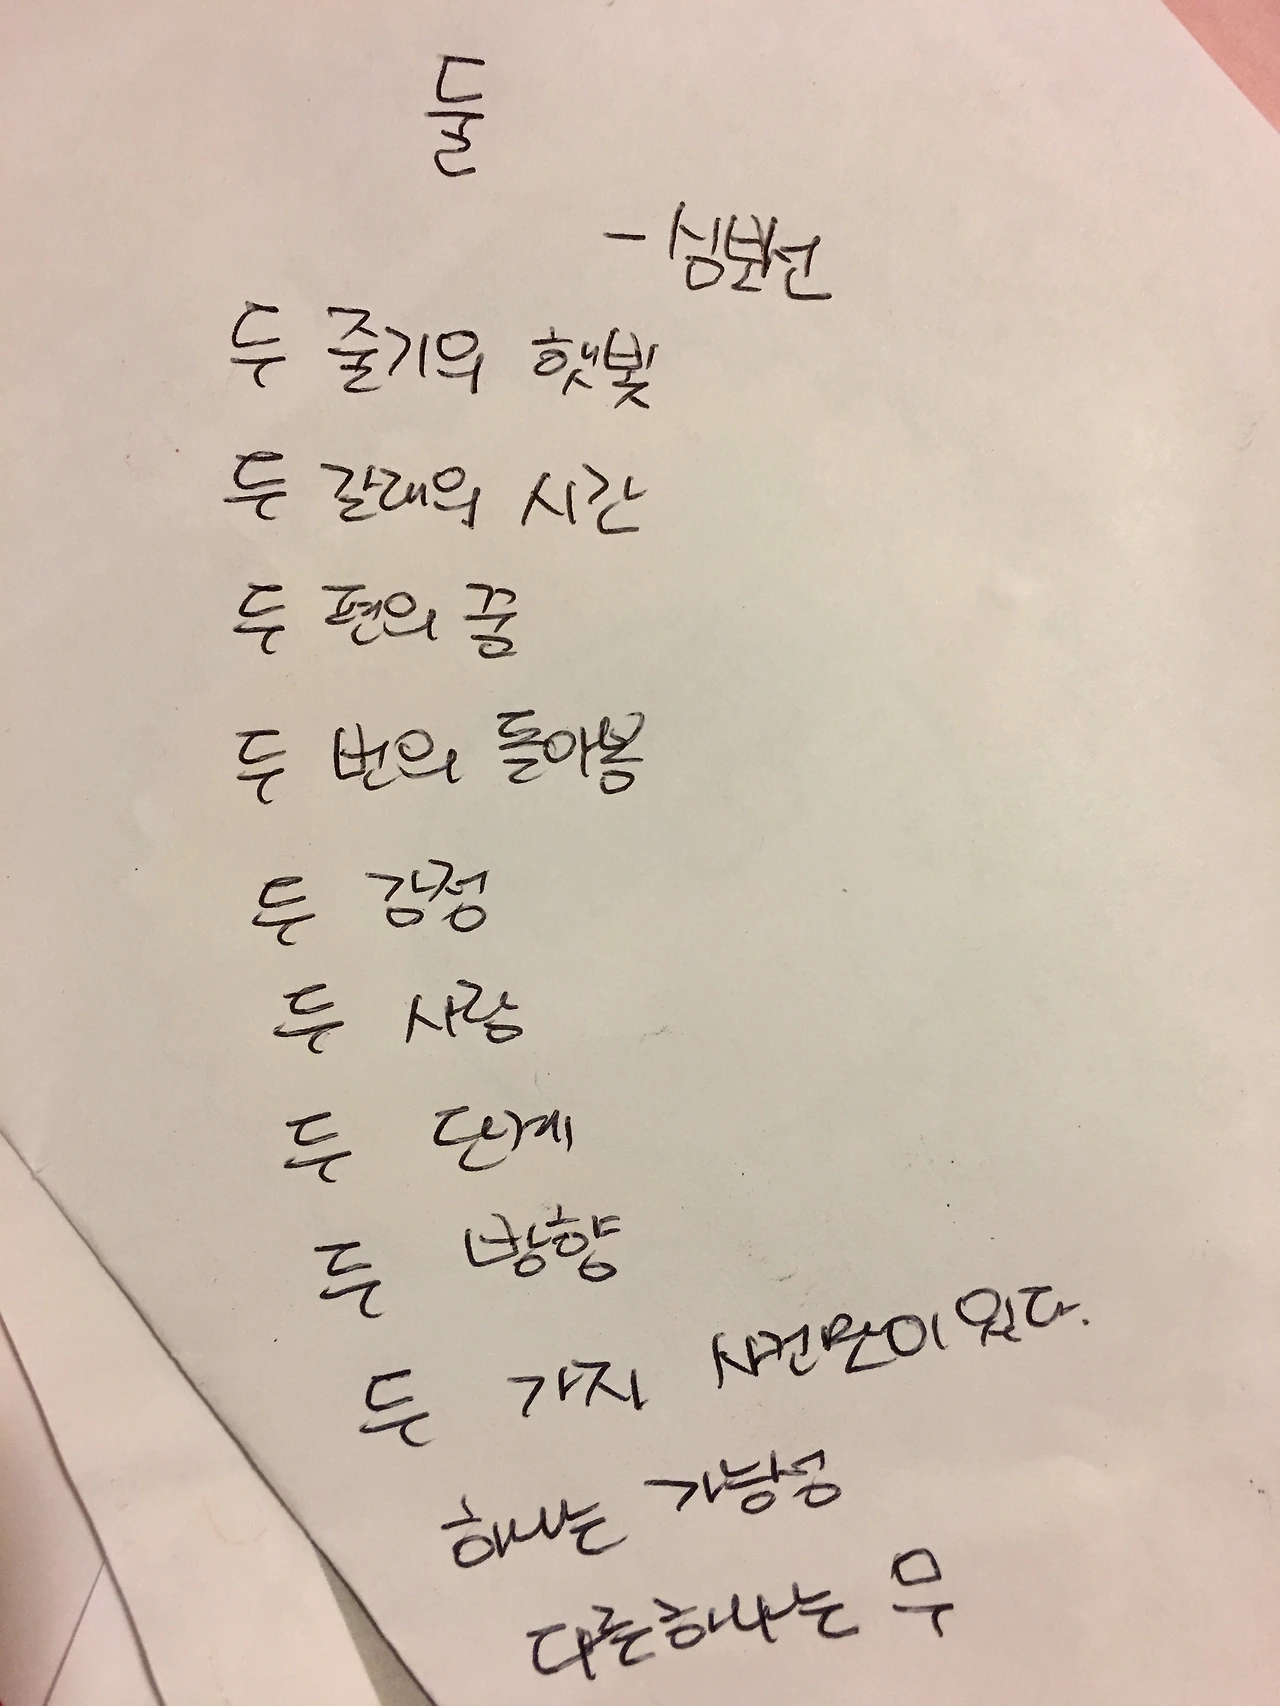 둘
- 심보선
두 줄기의 햇빛
두 갈래의 시간
두 편의 꿈
두 번의 돌아봄
두 감정
두 사람
두 단계
두 방향
두 가지 사건만이 있다.
하나는 가능성
다른하나는 무